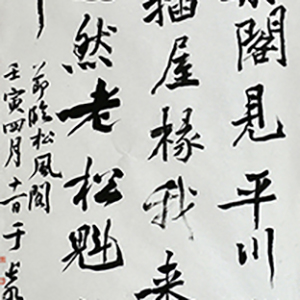 閣見平川
插屋椽我來
然老松魁
節臨松風閣
壬寅四月十一日于